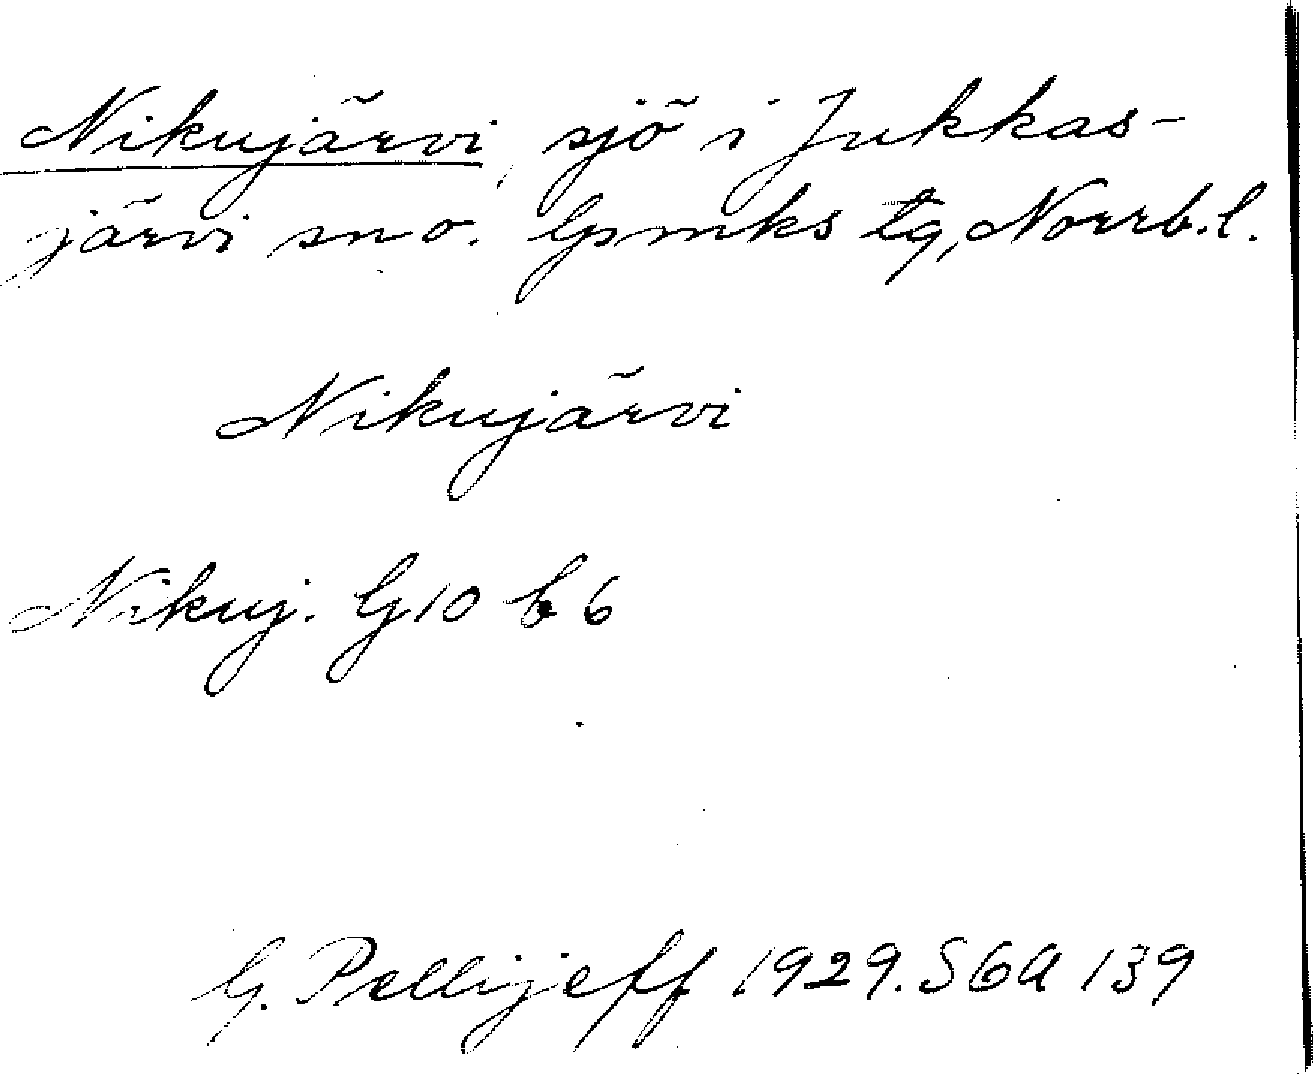 Nikujärvi, sjö i Jukkas-
järvi sn o. Lpmks tg, Norrb. l.
Nikujärvi
Nikuj. G10 b 6
G. Pellijeff 1929. SGA 139